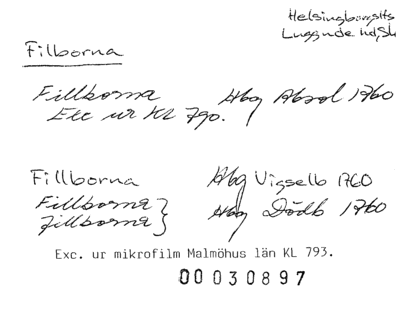 Helsingborgs lfs
Luggude hd, Sk
Filborna
Fillborna Hbg Absol 1760
Exc ur KL 790.
Fillborna Hbg Vigselb 1760
Fillborna }
Fillborna } Hbg Dödb 1760
Exc. ur mikrofilm Malmöhus län KL 793.
00030897